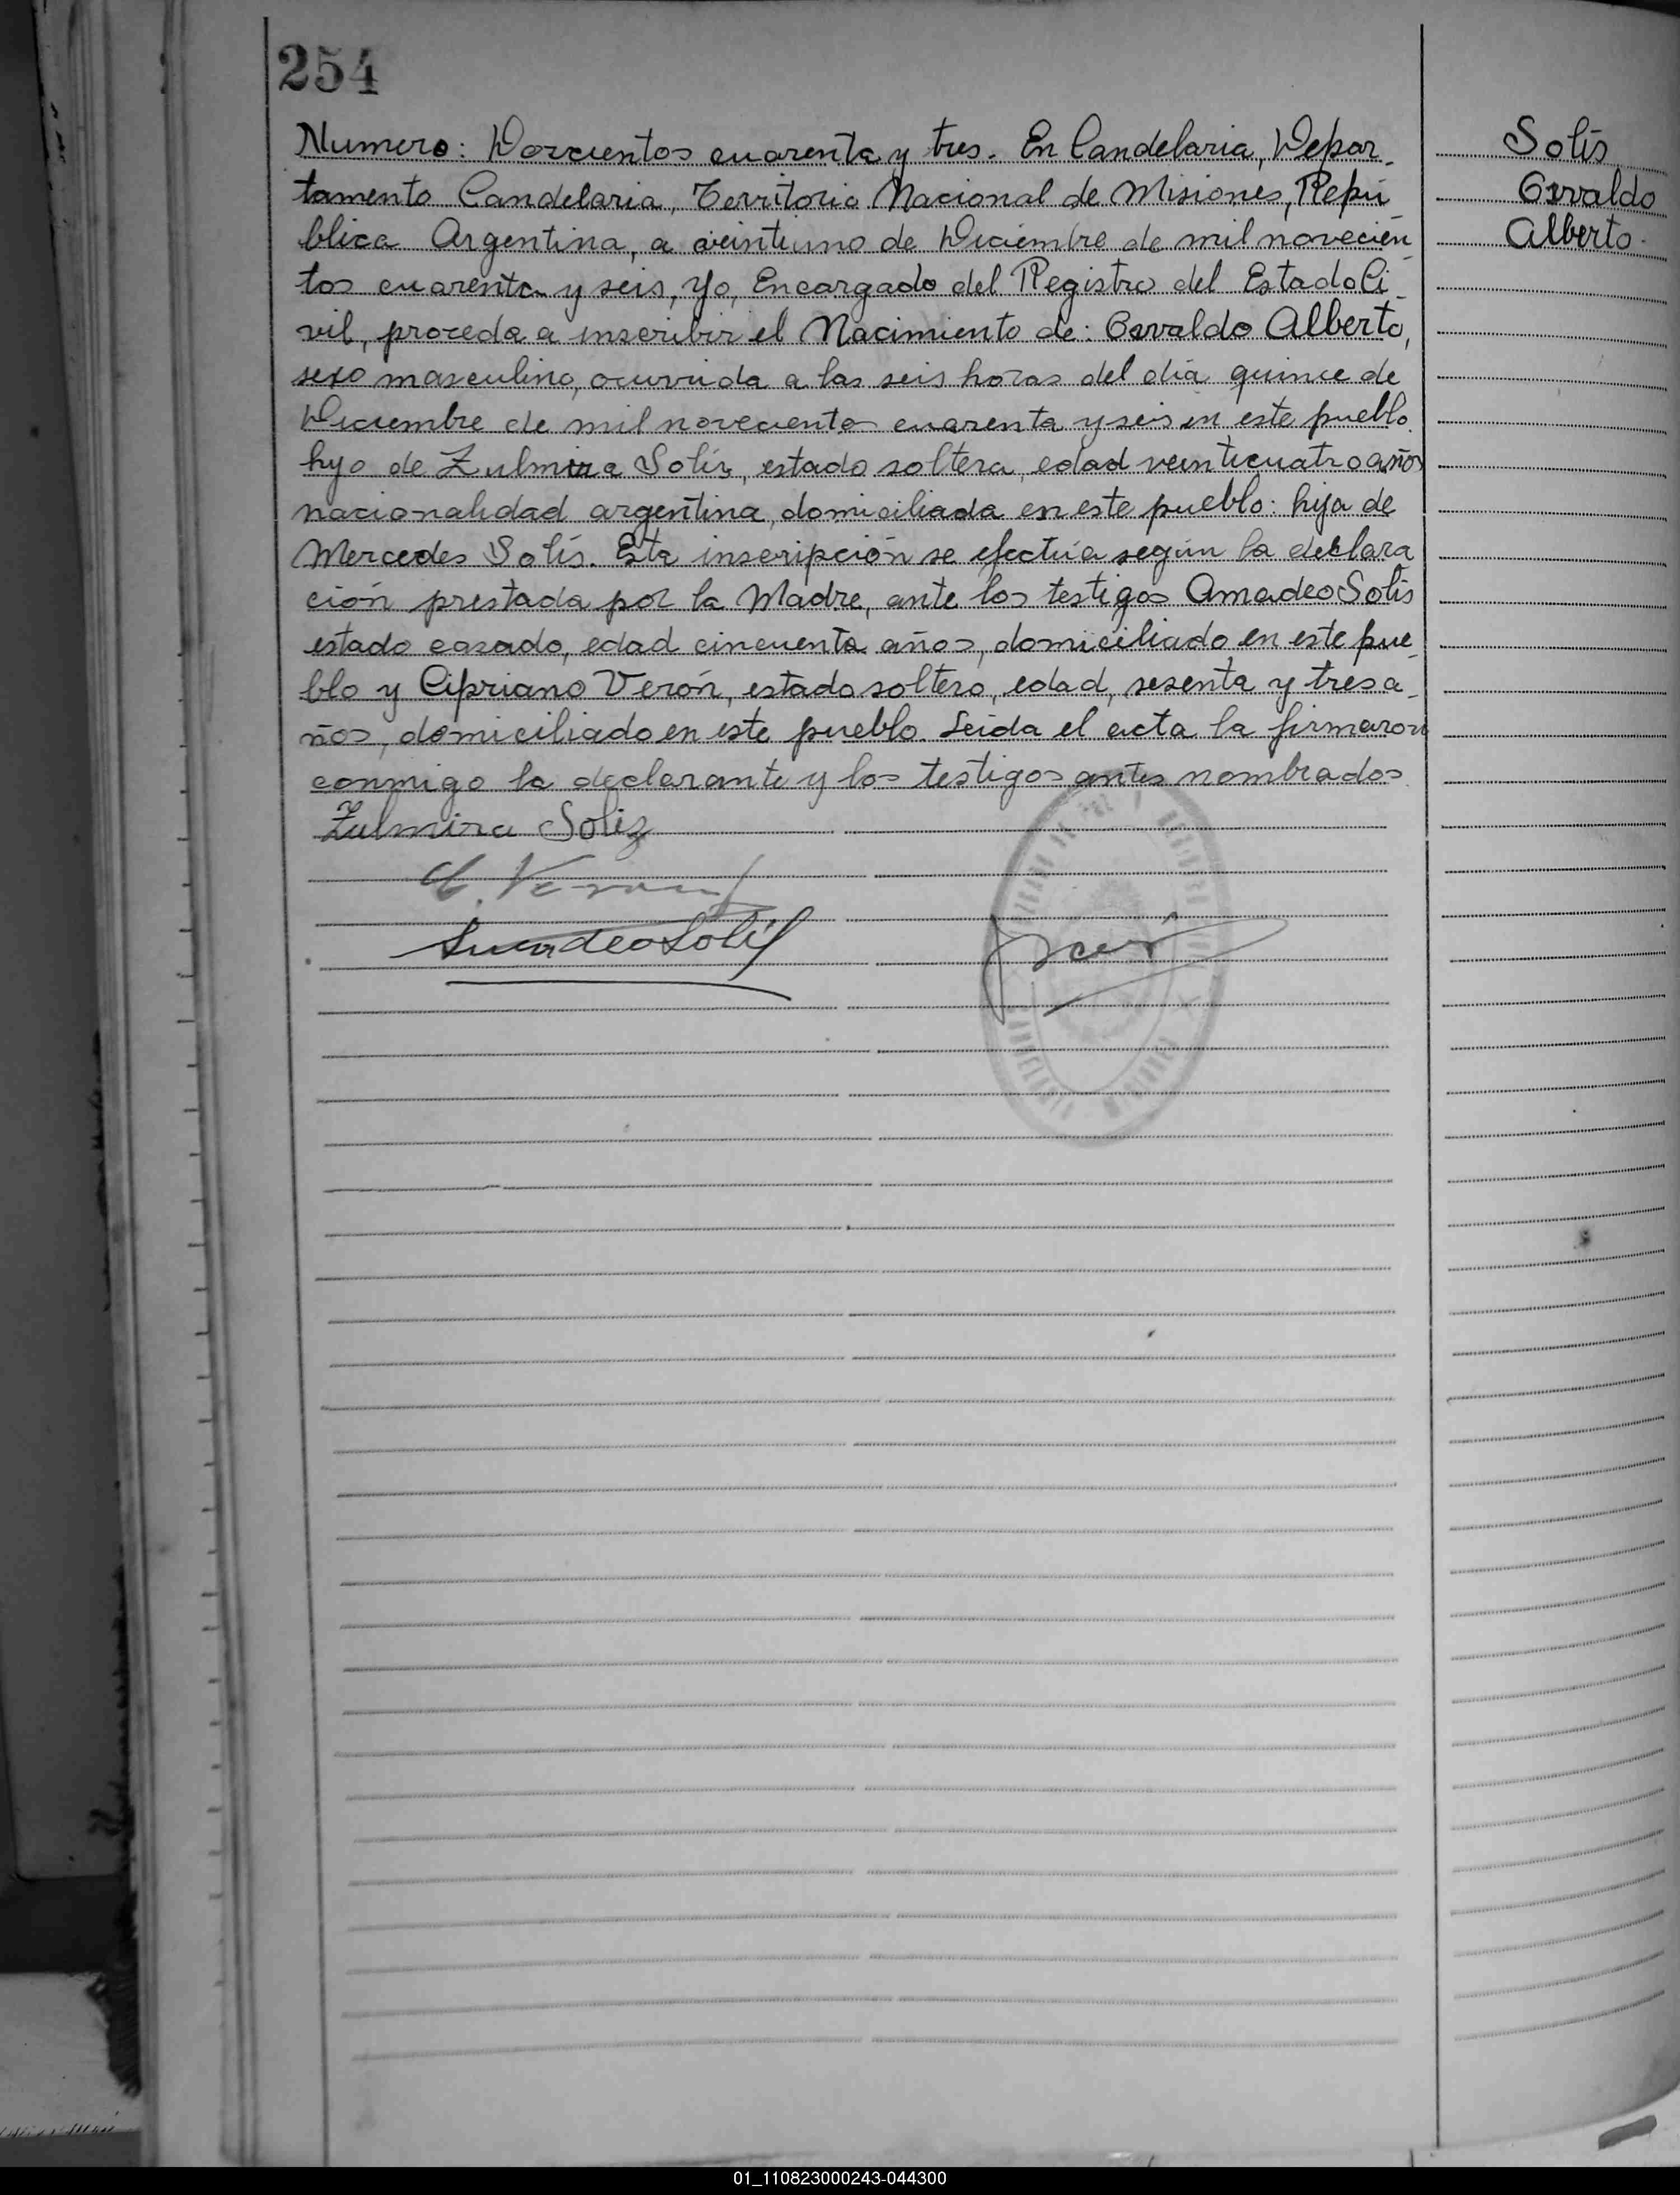 254
Numero: Doscientos cuarenta y tres. En Candelaria, Depar-
tamento Candelaria, Territorio Nacional de Misiones, Repú-
blica Argentina, a veintiuno de Diciembre de mil novecien-
tos cuarenta y seis, Yo, Encargado del Registro del Estado Ci-
vil, proceda a inscribir el Nacimiento de: Osvaldo Alberto,
sexo masculino, ocurrida a las seis horas del día quince de
Diciembre de mil novecientos cuarenta y seis en este pueblo.
hijo de Zulmira Solís, estado soltera, edad veinticuatro años
nacionalidad argentina, domiciliada en este pueblo: hija de
Mercedes Solís. Esta inscripción se efectúa según la declara
ción prestada por la Madre, ante los testigos Amadeo Solís
estado casado, edad cincuenta años, domiciliado en este pue-
blo y Cipriano Verón, estado soltero, edad, sesenta y tres a-
ños, domiciliado en este pueblo. Leída el acta la firmaron
conmigo la declarante y los testigos antes nombrados
Zulmira Soliz
C. Veron
Amadeo Solís
Solís
Osvaldo
Alberto.
01_110823000243-044300